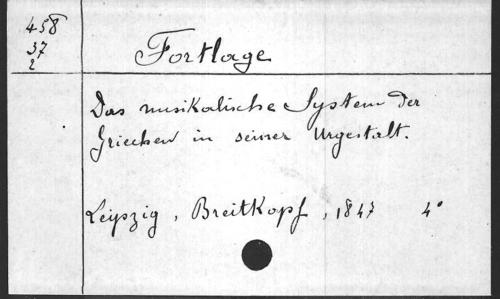 458
37
2
Fortlage
Das musikalische System der
Griechen in seiner Urgestalt.
Leipzig, Breitkopf, 1847 4°